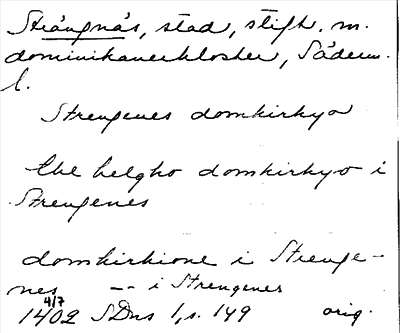 Strängnäs, stad, stift. m.
dominikanerkloster, Söderm.
l.
Strengenes domkirkyo
the helgho domkirkyo i
Strengenes
domkirkione i Strenge-
nes -- i Strengenes
4/7
1402 SDns 1, s. 149 orig.